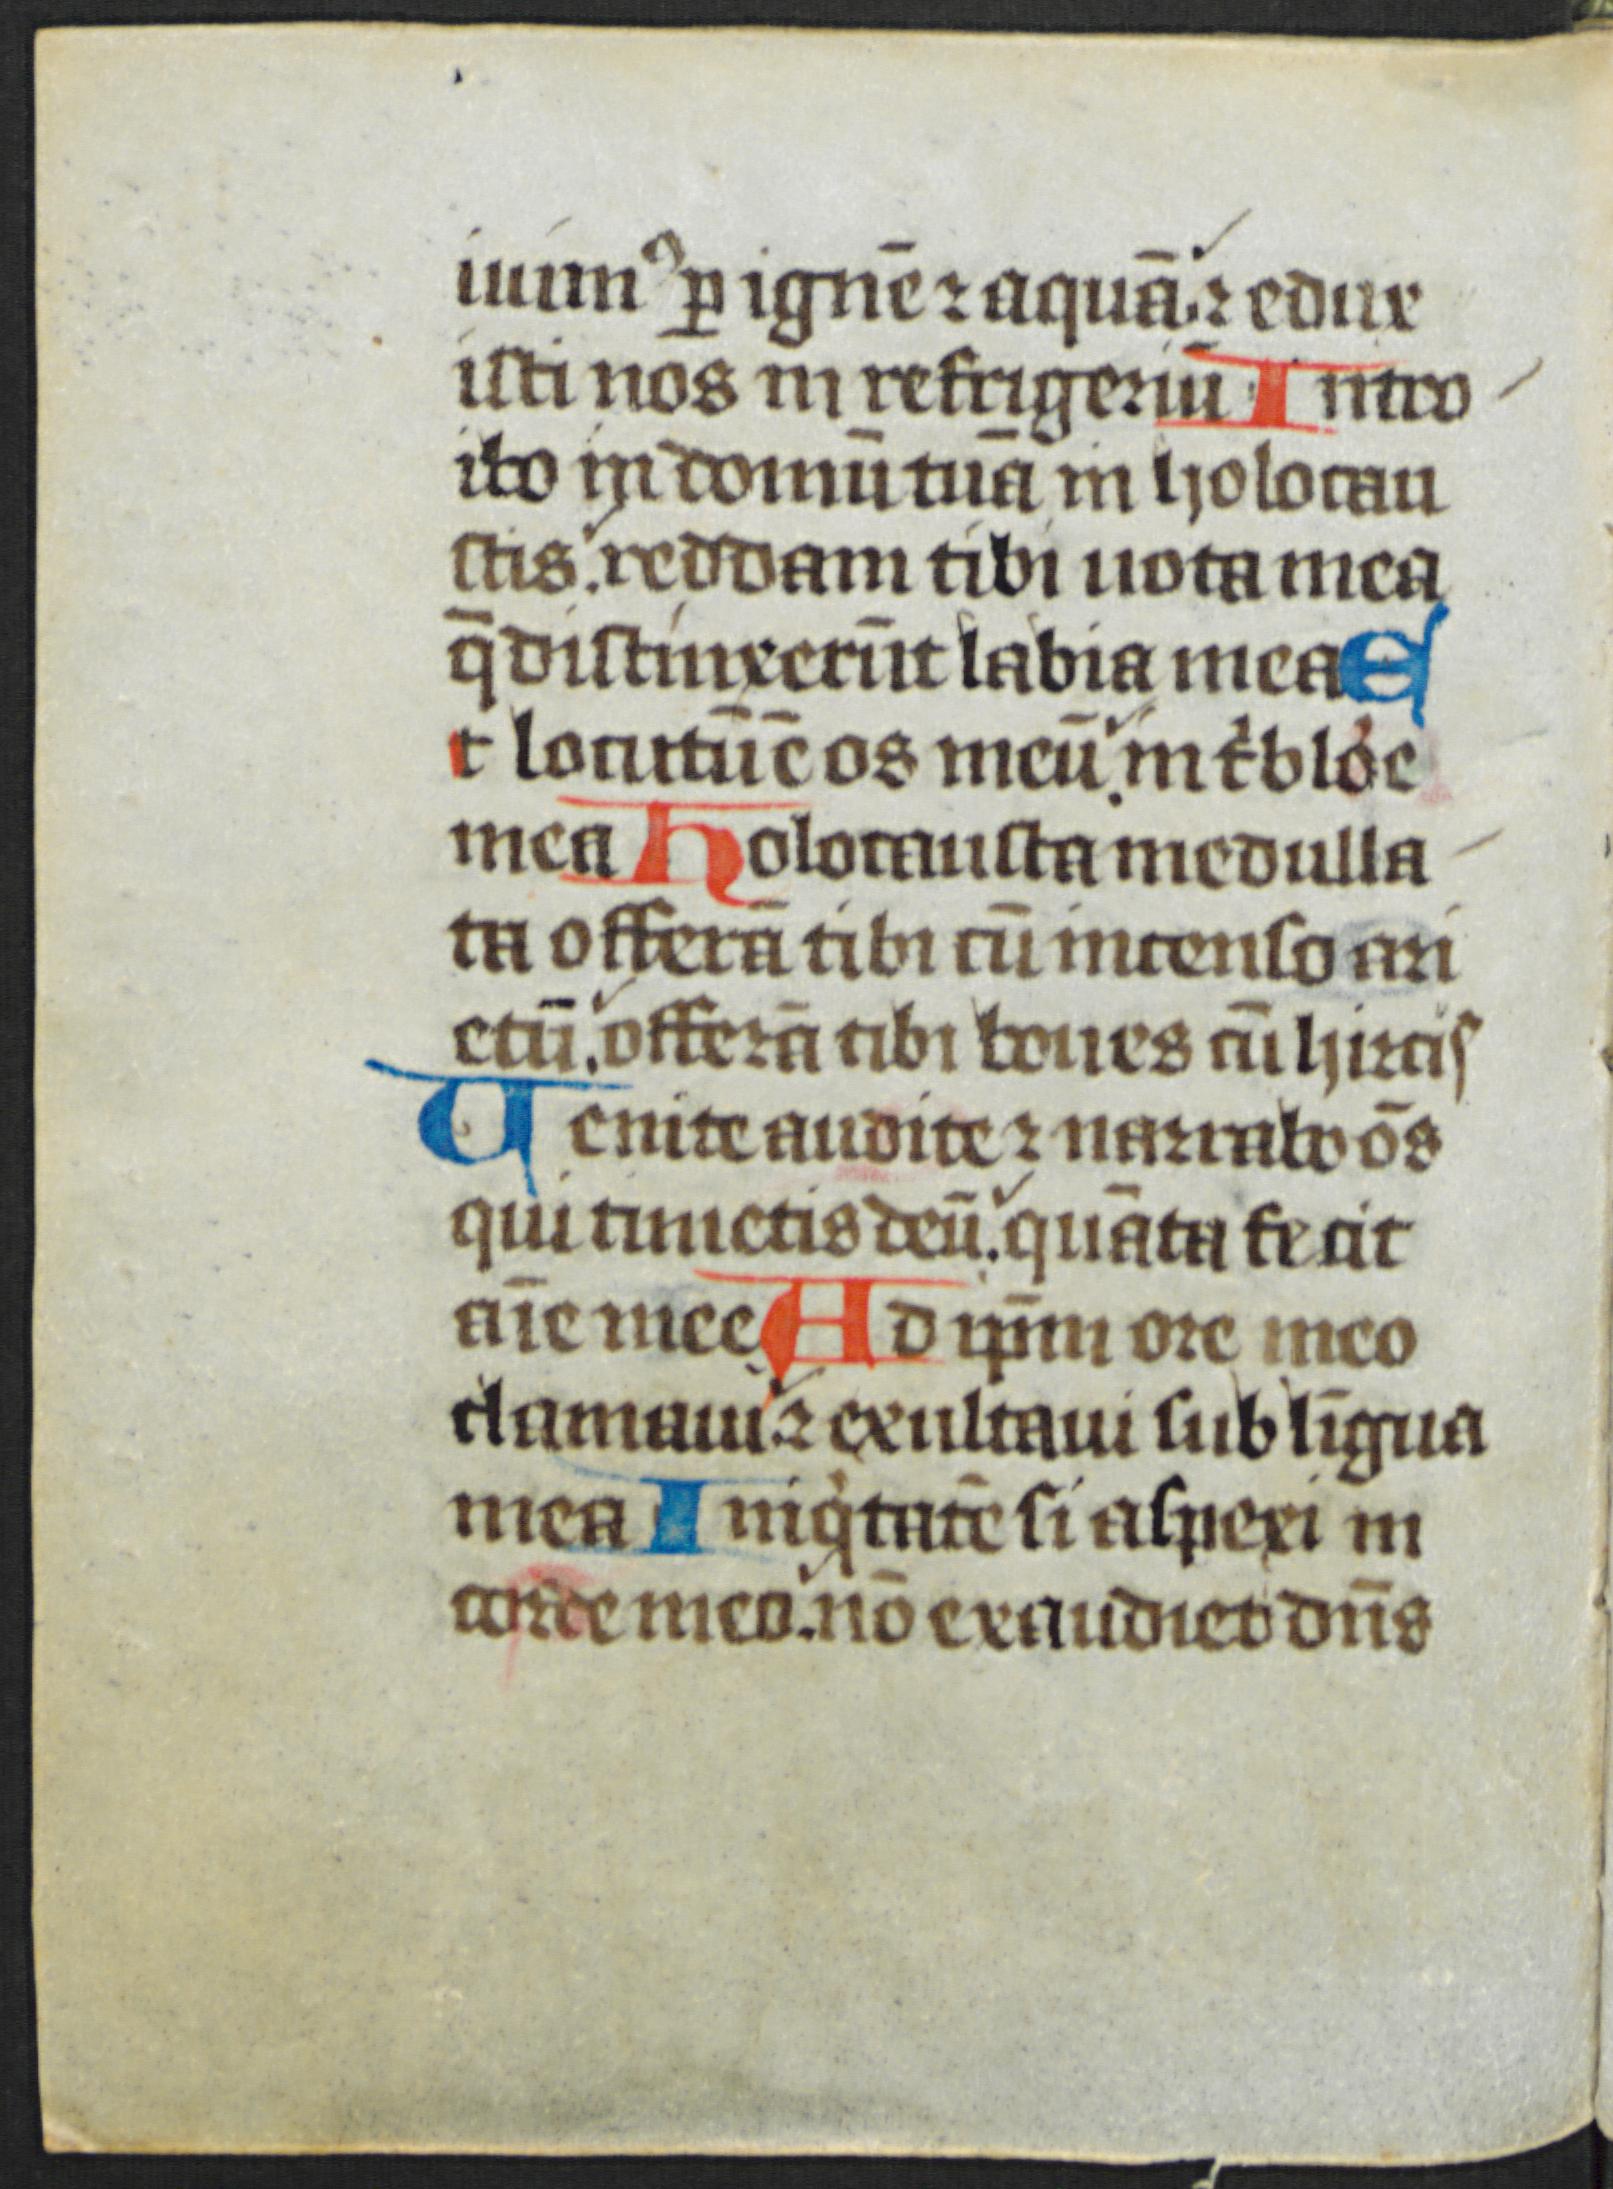 iuimꝰ ꝑ ignē ⁊ aquā. ⁊ edux
isti nos in refrigeriū Intro
ibo in domū tuā in holocau
stis. reddam tibi uota mea
q̄ distinxerūt labia mea E
t locutū ē os meū. in t̾blo̾e
mea Holocausta medulla
ta offerā tibi cū incenso ari
etū. offerā tibi boues cū hircis
Uenite audite ⁊ narrabo ōs
qui timetis deū. quāta fecit
aīe mee Ad ip̄m ore meo
clamaui. ⁊ exultaui sub līgua
mea Iniqͥtatē si aspexi in
corde meo. nō exaudiet dn̄s